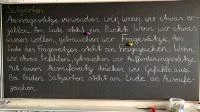 Satzarten
Aussagesätze verwenden wir, wenn wir etwas er-
zählen. Am Ende steht ein Punkt. Wenn wir etwas
wissen wollen, gebrauchen wir Fragesätze. Am
Ende des Fragesatzes steht ein Fragezeichen. Wenn
wir etwas befehlen, gebrauchen wir Aufforderungssätze.
Mit einem Ausrufesatz drücken wir Gefühle aus.
Bei beiden Satzarten steht am Ende ein Ausrufe-
zeichen.